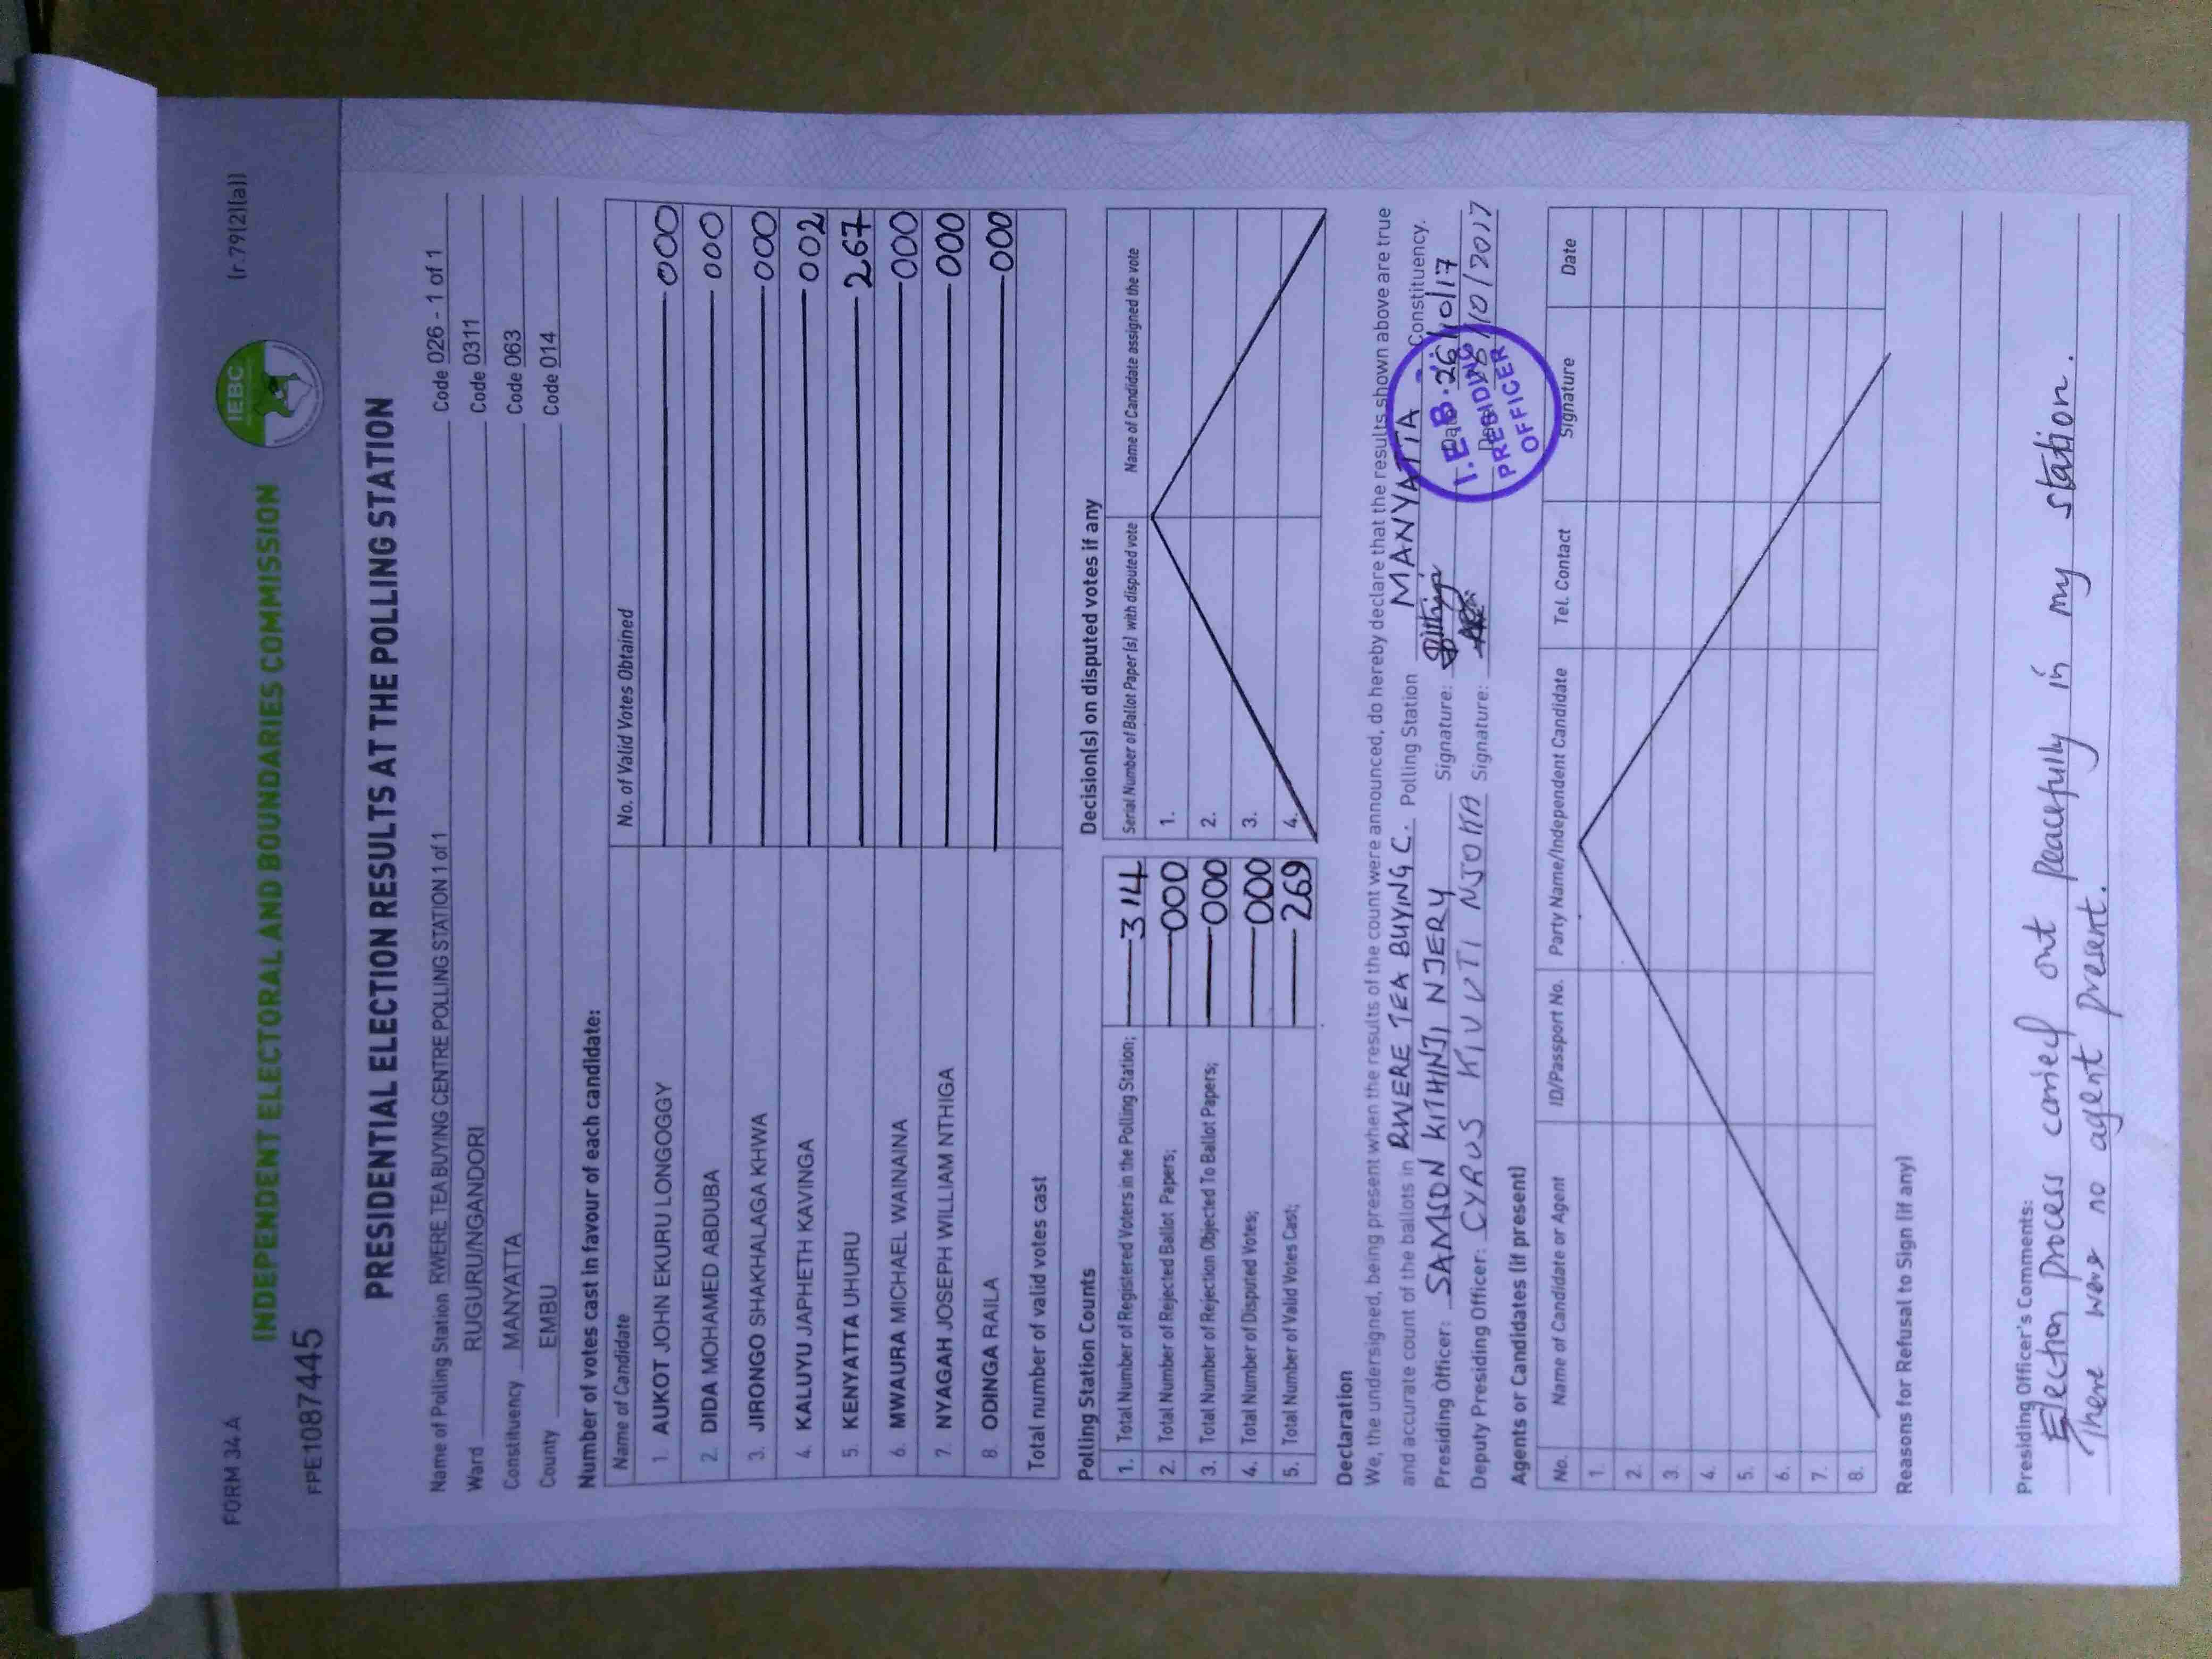 FORM 34 A
INDEPENDENT ELECTORAL AND BOUNDARIES COMMISSION IEBC (r.79(2)(a))
FPE1087445
PRESIDENTIAL ELECTION RESULTS AT THE POLLING STATION
Name of Polling Station RWERE TEA BUYING CENTRE POLLING STATION 1 of 1 Code 026 - 1 of 1
Ward RUGURU/NGANDORI Code 0311
Constituency MANYATTA Code 063
County EMBU Code 014
Number of votes cast in favour of each candidate:
Name of Candidate No. of Valid Votes Obtained
1. AUKOT JOHN EKURU LONGOGGY 000
2. DIDA MOHAMED ABDUBA 000
3. JIRONGO SHAKHALAGA KHWA 000
4. KALUYU JAPHETH KAVINGA 002
5. KENYATTA UHURU 267
6. MWAURA MICHAEL WAINAINA 000
7. NYAGAH JOSEPH WILLIAM NTHIGA 000
8. ODINGA RAILA 000
Total number of valid votes cast
Polling Station Counts
1. Total Number of Registered Voters in the Polling Station; 314
2. Total Number of Rejected Ballot Papers; 000
3. Total Number of Rejection Objected To Ballot Papers; 000
4. Total Number of Disputed Votes; 000
5. Total Number of Valid Votes Cast; 269
Decision(s) on disputed votes if any
Serial Number of Ballot Paper (s) with disputed vote Name of Candidate assigned the vote
1.
2.
3.
4.
Declaration
We, the undersigned, being present when the results of the count were announced, do hereby declare that the results shown above are true
and accurate count of the ballots in RWERE TEA BUYING C. Polling Station MANYATTA Constituency.
Presiding Officer: SAMSON KITHINJI NJERY Signature: Date 26/10/17
Deputy Presiding Officer: CYRUS KIVUTI NJOKA Signature: /10/2017
PRESIDING
OFFICER
Agents or Candidates (if present)
No. Name of Candidate or Agent ID/Passport No. Party Name/Independent Candidate Tel. Contact Signature Date
1.
2.
3.
4.
5.
6.
7.
8.
Reasons for Refusal to Sign (if any)
Presiding Officer's Comments:
Election process carried out peacefully in my station.
There were no agent present.